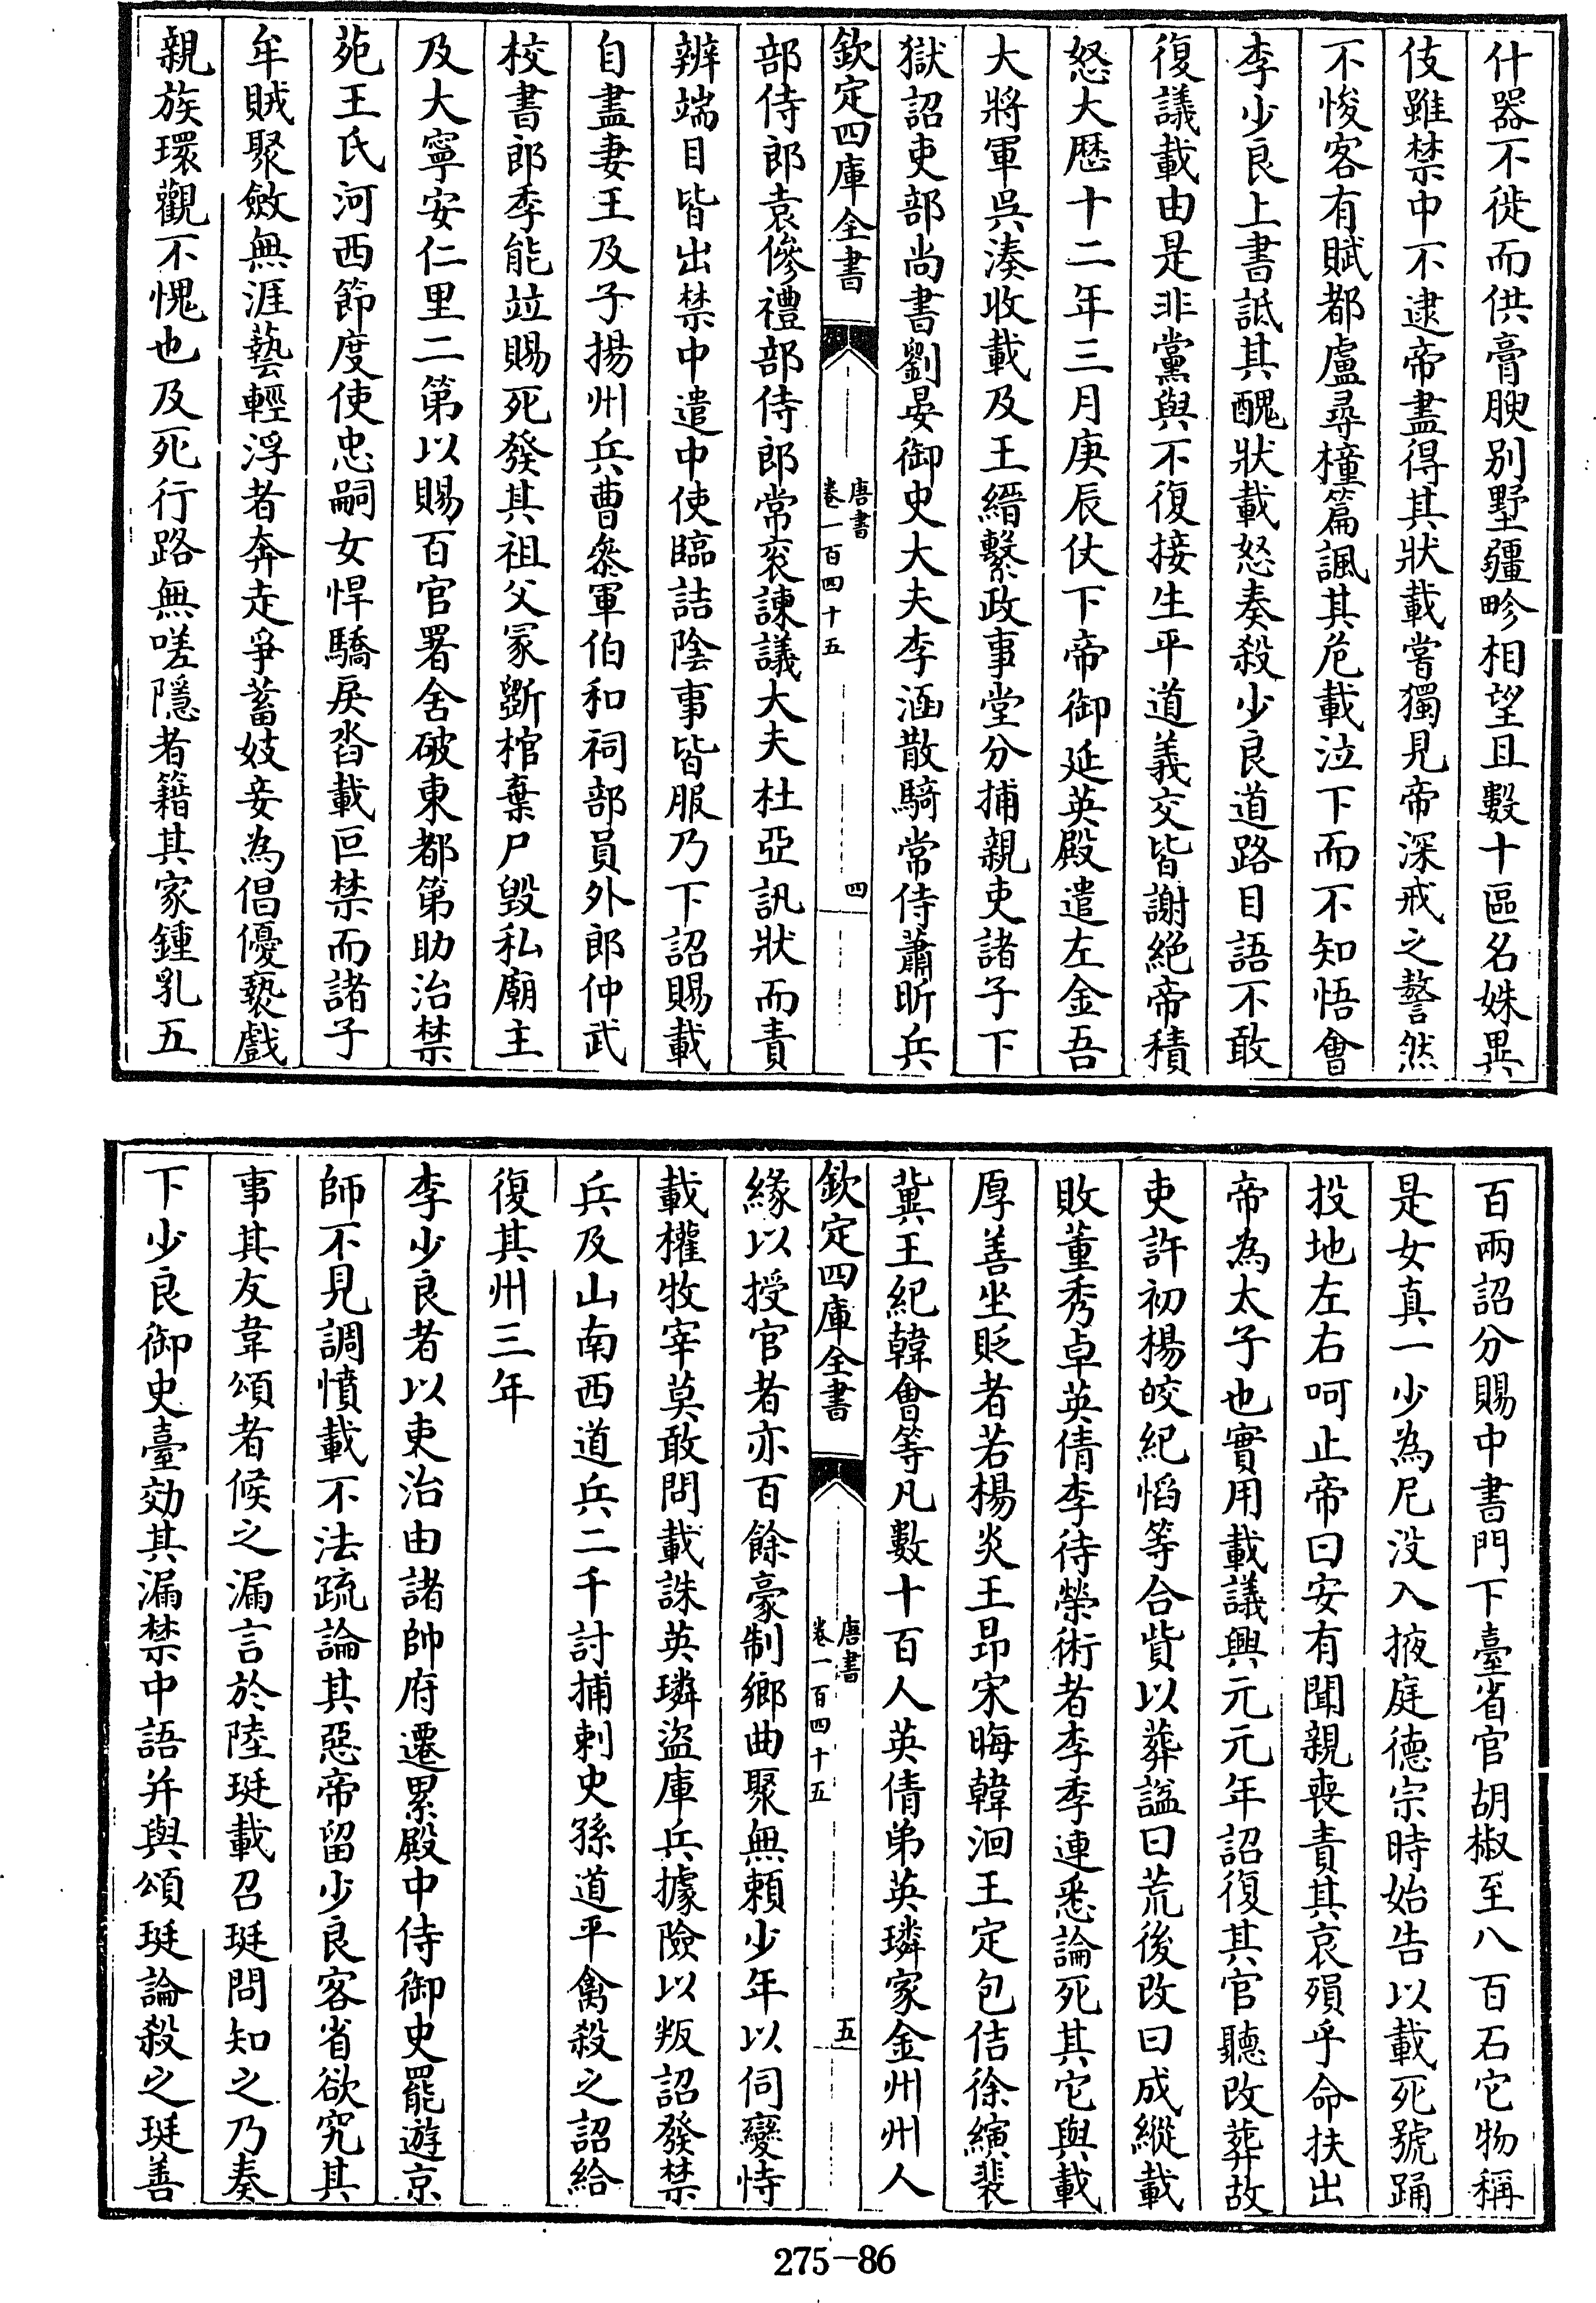 什器不徙而供膏腴别墅疆畛相望且數十區名姝異
伎雖禁中不逮帝盡得其狀載嘗獨見帝深戒之謷然
不悛客有賦都盧尋橦篇諷其危載泣下而不知悟會
李少良上書詆其醜狀載怒奏殺少良道路目語不敢
復議載由是非黨與不復接生平道義交皆謝絶帝積
怒大厯十二年三月庚辰仗下帝御延英殿遣左金吾
大將軍吳湊收載及王縉繫政事堂分捕親吏諸子下
獄詔吏部尚書劉晏御史大夫李涵散騎常侍蕭昕兵
欽定四庫全書
唐書
卷一百四十五
四
部侍郎袁傪禮部侍郎常衮諫議大夫杜亞訊狀而責
辨端目皆出禁中遣中使臨詰陰事皆服乃下詔賜載
自盡妻王及子揚州兵曹叅軍伯和祠部員外郎仲武
校書郎季能竝賜死發其祖父冢斲棺棄尸毁私廟主
及大寧安仁里二第以賜百官署舍破東都第助治禁
苑王氏河西節度使忠嗣女悍驕戾沓載叵禁而諸子
牟賊聚斂無涯藝輕浮者奔走爭蓄妓妾為倡優褻戲
親族環觀不愧也及死行路無嗟隱者籍其家鍾乳五
百兩詔分賜中書門下臺省官胡椒至八百石它物稱
是女真一少為尼没入掖庭德宗時始告以載死號踊
投地左右呵止帝曰安有聞親喪責其哀殞乎命扶出
帝為太子也實用載議興元元年詔復其官聽改葬故
吏許初楊皎紀慆等合貲以葬諡曰荒後改曰成縱載
敗董秀卓英倩李待榮術者李季連悉論死其它與載
厚善坐貶者若楊炎王昂宋晦韓洄王定包佶徐縯裴
冀王紀韓會等凡數十百人英倩弟英璘家金州州人
欽定四庫全書
唐書
卷一百四十五
五
緣以授官者亦百餘豪制鄉曲聚無頼少年以伺變恃
載權牧宰莫敢問載誅英璘盜庫兵據險以叛詔發禁
兵及山南西道兵二千討捕刺史孫道平禽殺之詔給
復其州三年
李少良者以吏治由諸帥府遷累殿中侍御史罷遊京
師不見調憤載不法疏論其惡帝留少良客省欲究其
事其友韋頌者候之漏言於陸珽載召珽問知之乃奏
下少良御史臺劾其漏禁中語并與頌珽論殺之珽善
275-86